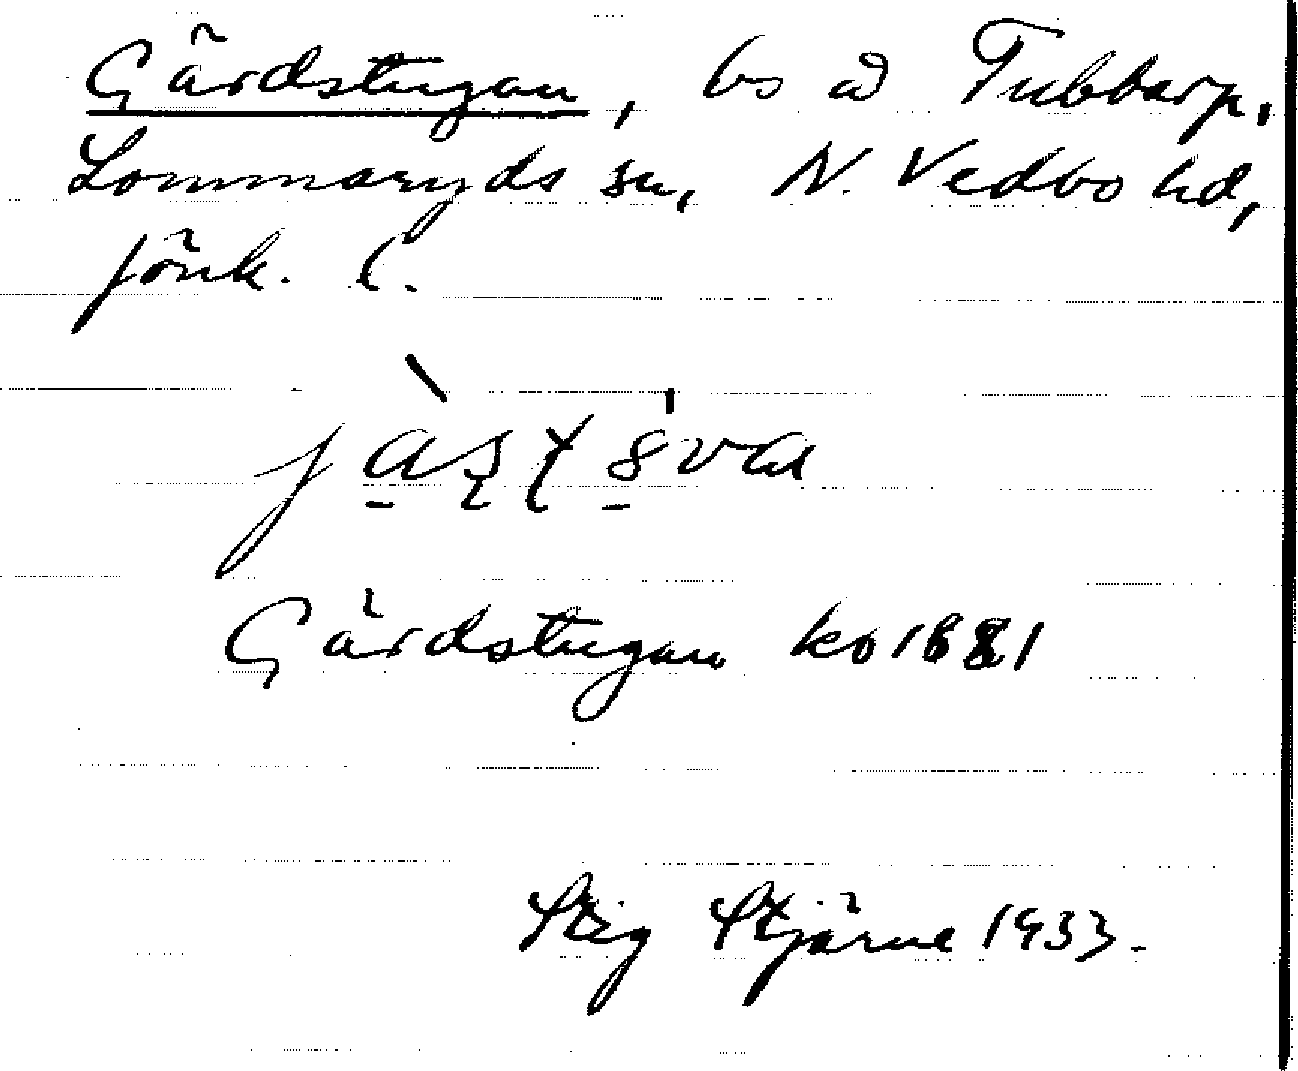 Gärdstugan, bs å Tubbarp,
Lommaryds sn, N. Vedbo hd,
Jönk. l.
Gärdstugan ko 1881
Stig Stjärne 1933.